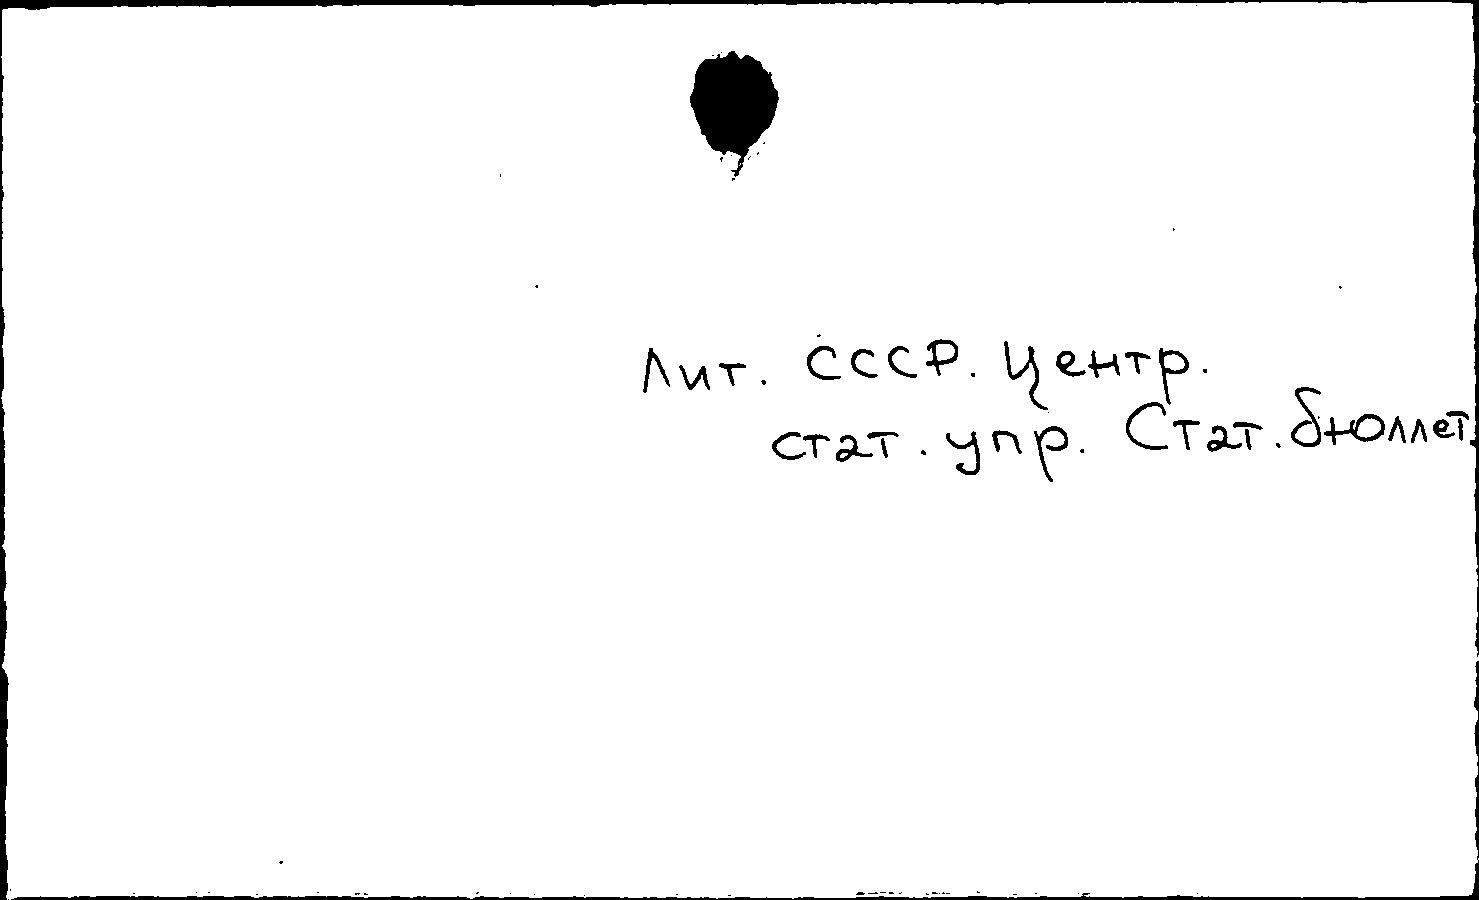 Лит. СССР. Центр.
стат. упр. Стат. бюллет.